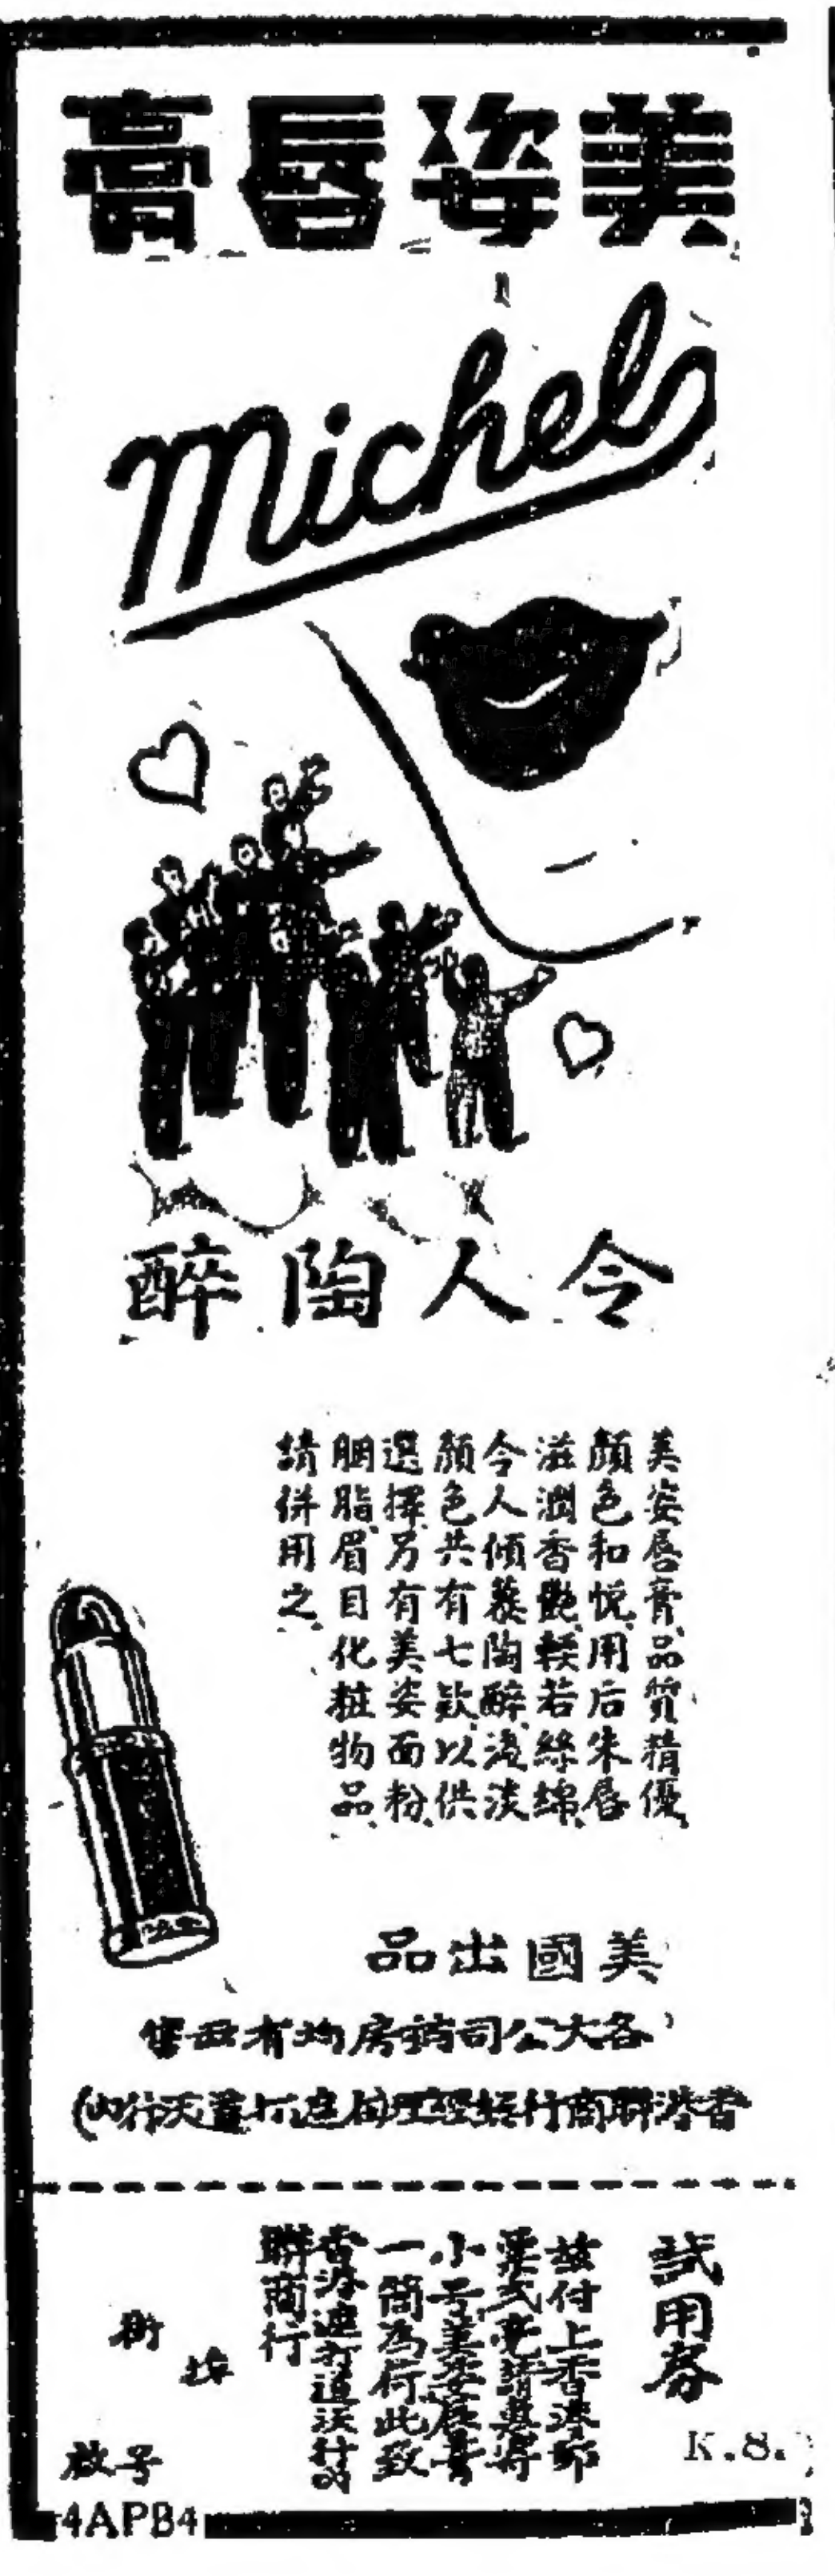 美姿唇膏
Michel
令人陶醉
美姿唇膏、品質精優、
顏色和悅、用后朱唇
滋潤香艷、輭若絲綿、
令人傾慕陶醉、濃淡
顏色共有七款、以供
選擇、另有美姿面粉、
胭脂、眉目化粧物品、
請併用之、
美國出品
各大公司藥房均有出售
香港聯商行
試用券
K.8.
茲付上香港郵
票弍毫請寄
小號美姿唇膏
一筒為荷此致
香港遮打道
聯商行
埠
街
啟
4APB4